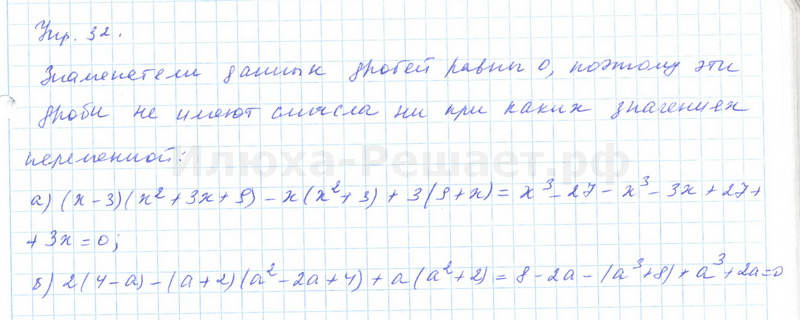 Упр. 32.
Знаменатели данных дробей равны 0, поэтому эти
дроби не имеют смысла ни при каких значениях
переменной:
Илюха-Решает.рф
а) (x-3)(x²+3x+9)-x(x²+3)+3(9+x)=x³-27-x³-3x+27+
+3x=0;
б) 2(4-a)-(a+2)(a²-2a+4)+a(a²+2)=8-2a-(a³+8)+a³+2a=0